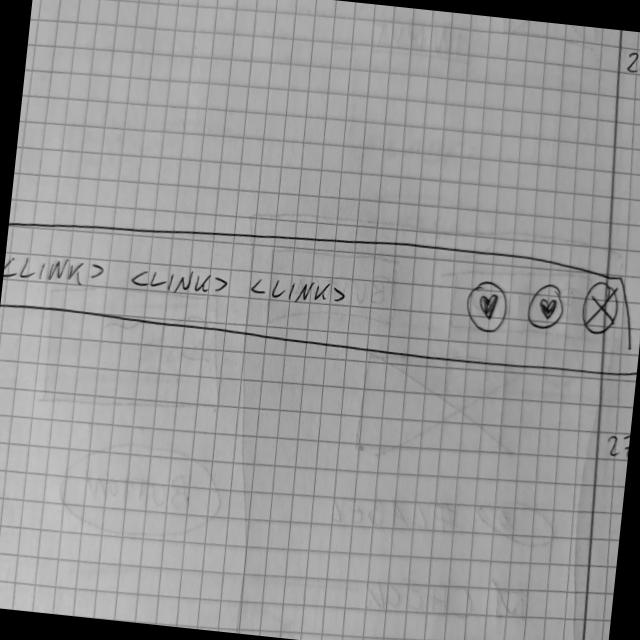 2
<LINK> <LINK> <LINK>
2